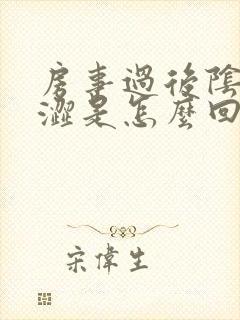 房事過後陰
澀是怎麼回
宋偉生